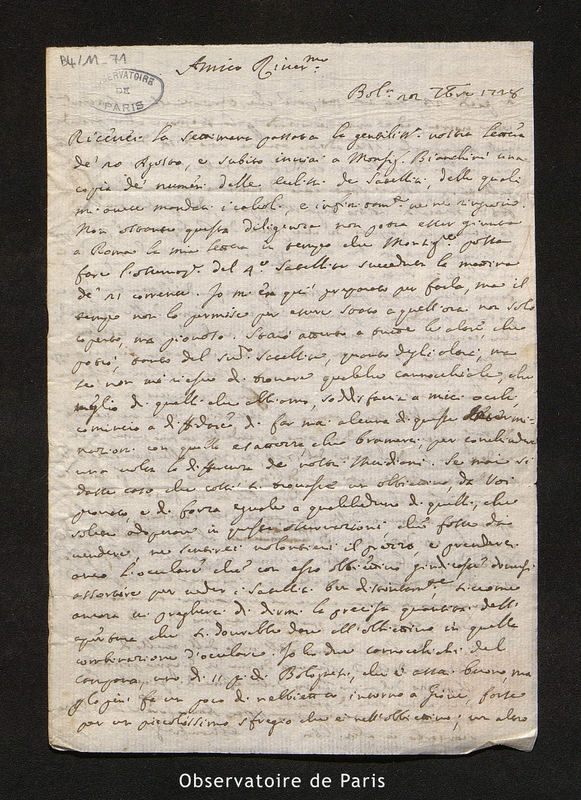 B4/11-71
OBSERVATOIRE
DE
PARIS
Amico River.mo
Bol.a 7bre 1728
Ricevei la settimana passata la gentiliss.a vostra lettera
de' 10 Agosto, e subito inviai a Monsig.r Bianchini una
copia de' numeri delle eclissi de' Satelliti, delle quali
mi avete mandati i calcoli, e infinitam.te ve ne ringrazio.
Non ostante questa diligenza non potrà esser giunta
a Roma la mia lettera in tempo che Mons.re possa
fare l'osservaz.e del 4.o Satellite succeduta la mattina
de' 21 corrente. Io m'era qui preparato per farla, ma il
tempo non lo permise per essere stato a quell'ora non solo
coperto, ma piovoso. Starò attento a tutte le altre, che
potrò, tanto del sud.o Satellite, quanto degli altri, ma
se non mi riesce di trovare qualche cannocchiale, che
meglio di quelli che abbiamo, soddisfaccia a' miei occhi,
comincio a diffidare di far mai alcuna di queste
nazioni con quella esattezza che bramerei, per conchiudere
una volta la differenza de' nostri Meridiani. Se mai si
desse caso che costì si trovasse un obbiettivo, da voi
provato, e di forza eguale a qualcheduno di quelli, che
solete adoperare in queste osservazioni, che fosse da
vendere, ne sentirei volontieri il prezzo, e prenderei
anco l'oculare che con esso obbiettivo giudicaste doversi
assortire per veder i Satelliti ben distintam.te, siccome
ancora vi pregherei di dirmi la precisa quantità dell'
apertura che si dovrebbe dare all'obbiettivo in quella
combinazione d'oculario. Io ho due cannocchiali del
Campana, uno di 11 p. di Bologna, che è assai buono, ma
fa un poco di nebbietta intorno a Giove, forse
per un piccolissimo sfregio che è nell'obbiettivo; un altro
Observatoire de Paris